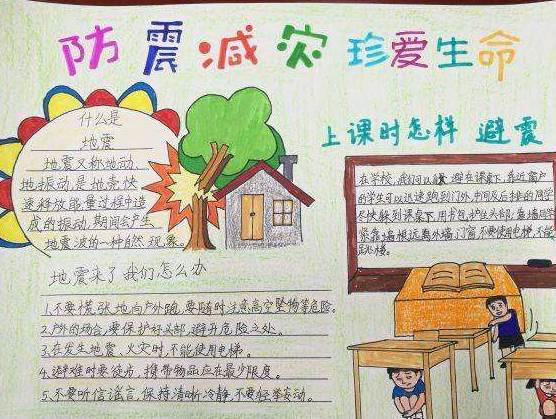 防震减灾 珍爱生命
什么是
地震
地震又称地动、
地振动,是地壳快
速释放能量过程中造
成的振动,期间会产生
地震波的一种自然现象。
上课时怎样 避震
在学校,我们可以 避在课桌下,靠近窗户
的学生可以迅速跑到门外,中间及后排的同学
尽快躲到课桌下,用书包护住头部;靠墙同学
紧靠墙根远离外墙,门窗不要使用电梯,不能
跳楼。
地震来了我们怎么办
1.不要慌张地向户外跑,要随时注意高空坠物等危险。
2.户外的场合,要保护好头部,避开危险之处。
3.在发生地震、火灾时,不能使用电梯。
4.避难时要徒步,携带物品应在最少限度。
5.不要听信谣言,保持清晰冷静,不要轻举妄动。